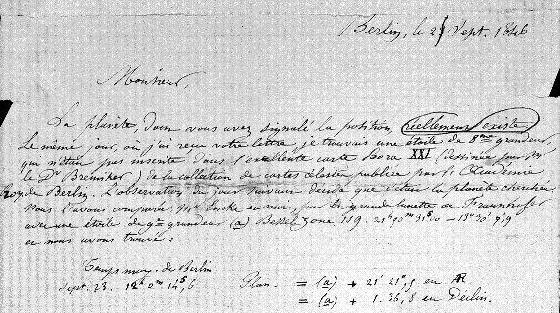 Berlin, le 25 Sept. 1846
Monsieur,
La planète, dont vous avez signalé la position réellement existe
Le même jour, où j'ai reçu votre lettre, je trouvais une étoile de 8me grandeur,
qui n'était pas inscrite dans l'excellente carte Hora XXI (dessinée par Mr
le Dr Bremiker) de la collection de cartes célestes publiée par l'Académie
roy. de Berlin. L'observation du jour suivant décida que c'était la planète cherchée
Nous l'avons comparée, Mr Encke et moi, par la grande lunette de Fraunhofer
avec une étoile de 9e grandeur (a) Bessel Zone 119. 21h
ce nous avons trouvé:
Temps moy. de Berlin
Sept. 23. 12h 0m 14s,6 Plan. = (a) + 21' 21",8 en AR
= (a) + 1. 36,8 en Déclin.